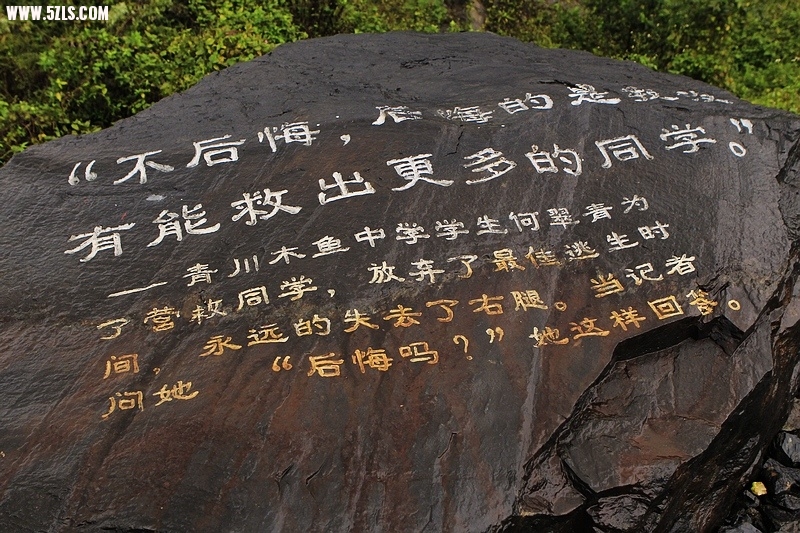 WWW.5ZLS.COM
“不后悔，后悔的是我没
有能救出更多的同学。”
—青川木鱼中学学生何翠青为
了营救同学，放弃了最佳逃生时
间，永远的失去了右腿。当记者
问她“后悔吗？”她这样回答。